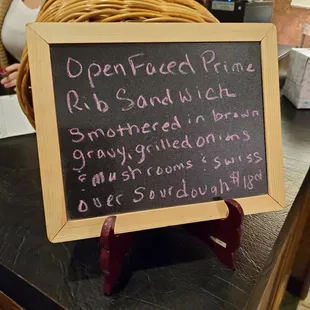 Open Faced Prime
Rib Sandwich
Smothered in brown
gravy, grilled onions
& mushrooms & swiss
over Sourdough $18